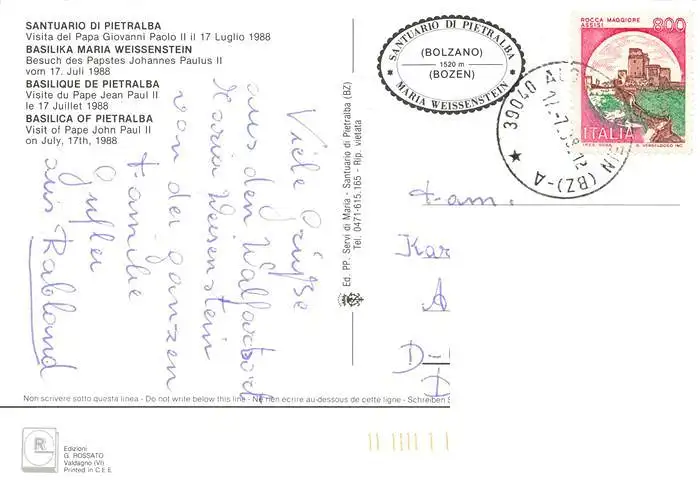 SANTUARIO DI PIETRALBA
Visita del Papa Giovanni Paolo II il 17 Luglio 1988
BASILIKA MARIA WEISSENSTEIN
Besuch des Papstes Johannes Paulus II
vom 17. Juli 1988
BASILIQUE DE PIETRALBA
Visite du Pape Jean Paul II
le 17 Juillet 1988
BASILICA OF PIETRALBA
Visit of Pape John Paul II
on July, 17th, 1988
SANTUARIO DI PIETRALBA
(BOLZANO)
1520 m
(BOZEN)
MARIA WEISSENSTEIN
ROCCA MAGGIORE
ASSISI
800
ITALIA
39040
(BZ)-A
Viele Grüsse
aus den Wallfartsort
Maria Weisenstein
von der ganzen
Familie
aus Rabland
Ed. PP. Servi di Maria - Santuario di Pietralba (BZ)
Tel. 0471-615.165 - Rip. vietata
Fam.
Kar
A
D-
D
Non scrivere sotto questa linea - Do not write below this line - Ne rien ecrire au-dessous de cette ligne - Schreiben S
R
Edizioni
G. ROSSATO
Valdagno (VI)
Printed in C.E.E.